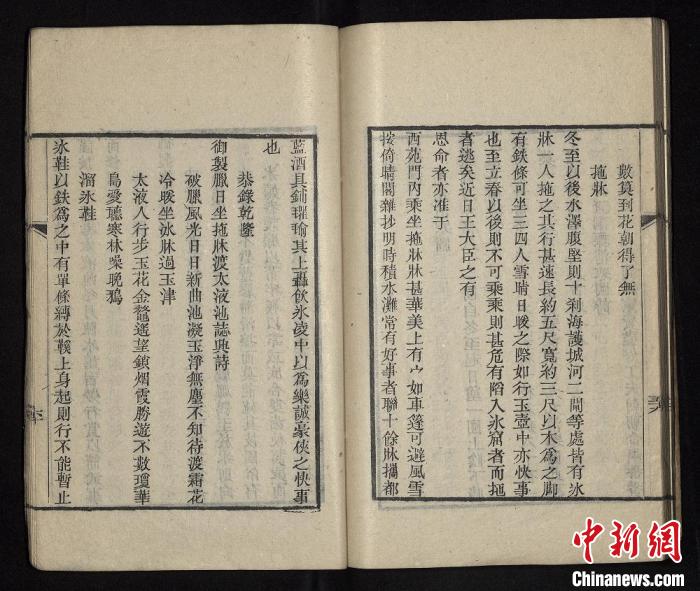 數算到花朝得了無
拖牀
冬至以後水澤腹堅則十刹海護城河二閘等處皆有氷
牀一人拖之其行甚速長約五尺寬約三尺以木為之脚
有鉄條可坐三四人雪晴日暖之際如行玉壺中亦快事
也至立春以後則不可乘乘則甚危有陷入氷窟者而拖
者逃矣近日王大臣之有
恩命者亦准于
西苑門內乘坐拖牀牀甚華美上有𢂿如車篷可避風雪
按倚晴閣雜抄明時積水灘常有好事者聯十餘牀攜都
藍酒具鋪氍毹其上轟飲氷凌中以為樂誠豪俠之快事
也
恭錄乾隆
御製臘日坐拖牀渡太液池誌興詩
破臘風光日日新曲池凝玉淨無塵不知待渡霜花
冷暖坐氷牀過玉津
太液人行步玉花金鼇遙望鎖烟霞勝遊不數瓊華
島愛聽寒林噪晚鴉
溜氷鞋
氷鞋以鉄為之中有單條縛於鞵上身起則行不能暫止
中新网
Chinanews.com